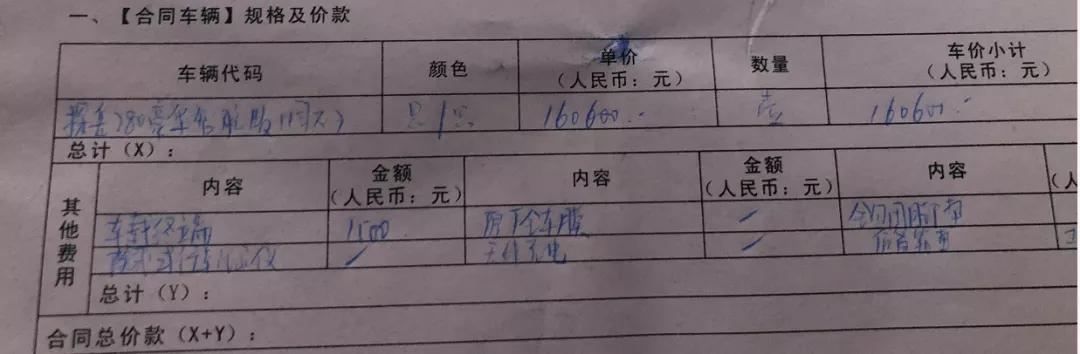 一、【合同车辆】规格及价款
车辆代码 颜色 单价（人民币：元） 数量 车价小计（人民币：元）
280豪华 160600 壹 160600
总计（X）：
其他费用 内容 金额（人民币：元） 内容 金额（人民币：元） 内容
车载终端 1500 全车膜
行车记录仪 无线充电
总计（Y）：
合同总价款（X+Y）：